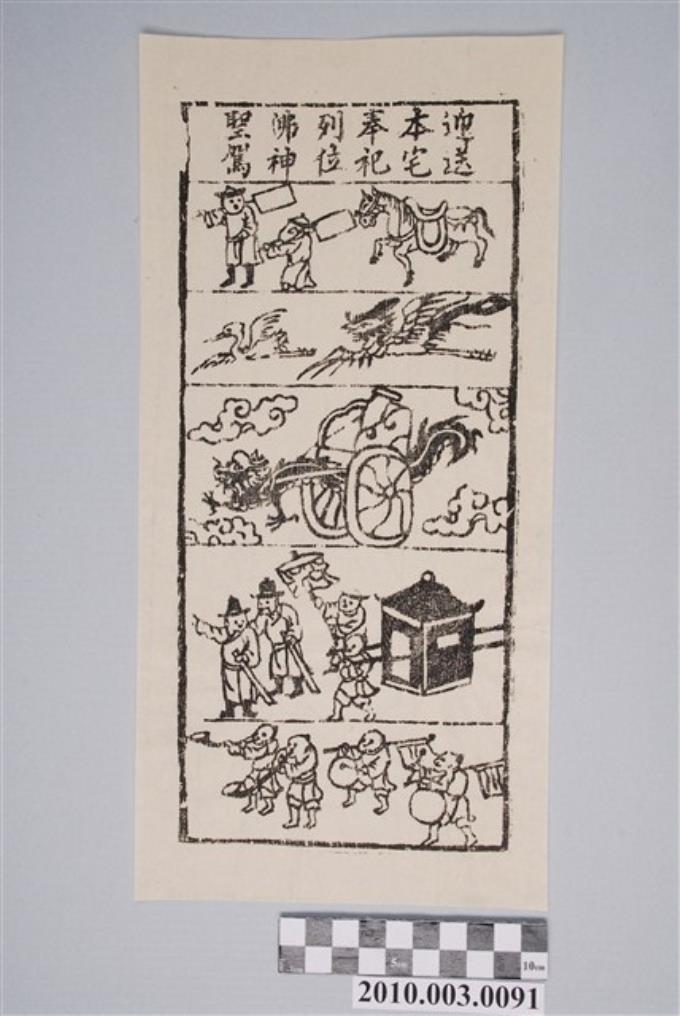 迎送
本宅
奉祀
列位
佛神
聖駕
5cm
10cm
2010.003.0091